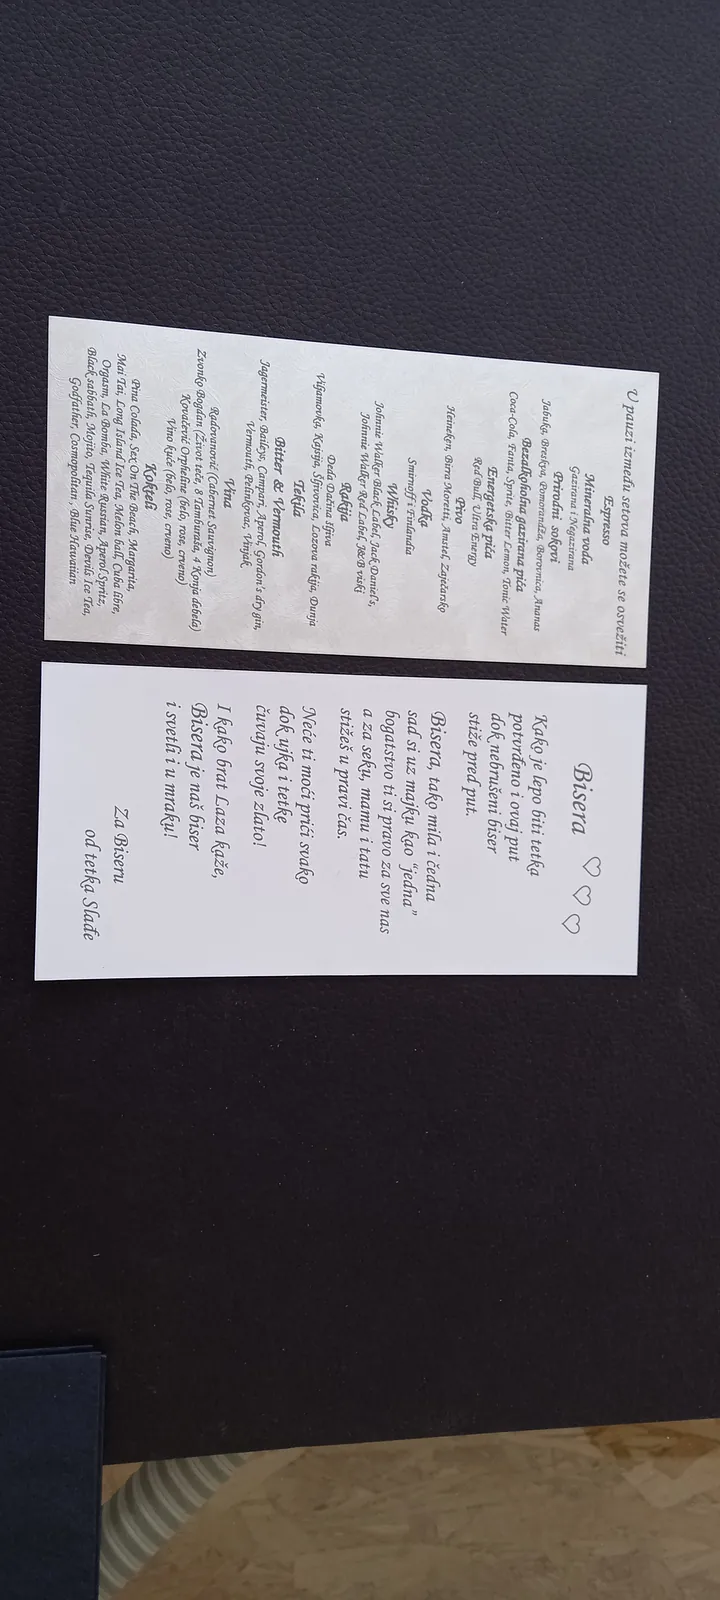 U pauzi između setova možete se osvežiti
Espresso
Mineralna voda
Gazirana i Negazirana
Prirodni sokovi
Jabuka, Breskva, Pomorandža, Borovnica, Ananas
Bezalkoholna gazirana pića
Coca-Cola, Fanta, Sprite, Bitter Lemon, Tonic Water
Energetska pića
Red Bull, Ultra Energy
Pivo
Heineken, Birra Moretti, Amstel, Zaječarsko
Vodka
Smirnoff i Finlandia
Whisky
Johnnie Walker Black Label, Jack Daniel's,
Johnnie Walker Red Label, J&B viski
Rakija
Deda Dačina šljiva
Viljamovka, Kajsija, Šljivovica, Lozova rakija, Dunja
Tekila
Bitter & Vermouth
Jagermeister, Baileys, Campari, Aperol, Gordon's dry gin,
Vermouth, Pelinkovac, Vinjak
Vina
Radovanović (Cabernet Sauvignon)
Zvonko Bogdan (Život teče, 8 Tamburaša, 4 Konja debela)
Kovačević Orpheline (belo, rose, crveno)
Vino kuće (belo, rose, crveno)
Kokteli
Pina Colada, Sex On The Beach, Margarita,
Mai Tai, Long Island Ice Tea, Melon ball, Cuba libre,
Orgasm, La Bomba, White Russian, Aperol Spritz,
Black sabbath, Mojito, Tequila Sunrise, Devils Ice Tea,
Godfather, Cosmopolitan, Blue Hawaiian
Bisera ♡ ♡ ♡
Kako je lepo biti tetka
potvrđeno i ovaj put
dok nebrušeni biser
stiže pred put.
Bisera, tako mila i čedna
sad si uz majku kao "jedna"
bogatstvo ti si pravo za sve nas
a za seku, mamu i tatu
stižeš u pravi čas.
Neće ti moći prići svako
dok ujka i tetke
čuvaju svoje zlato!
I kako brat Laza kaže,
Bisera je naš biser
i svetli i u mraku!
Za Biseru
od tetka Slađe